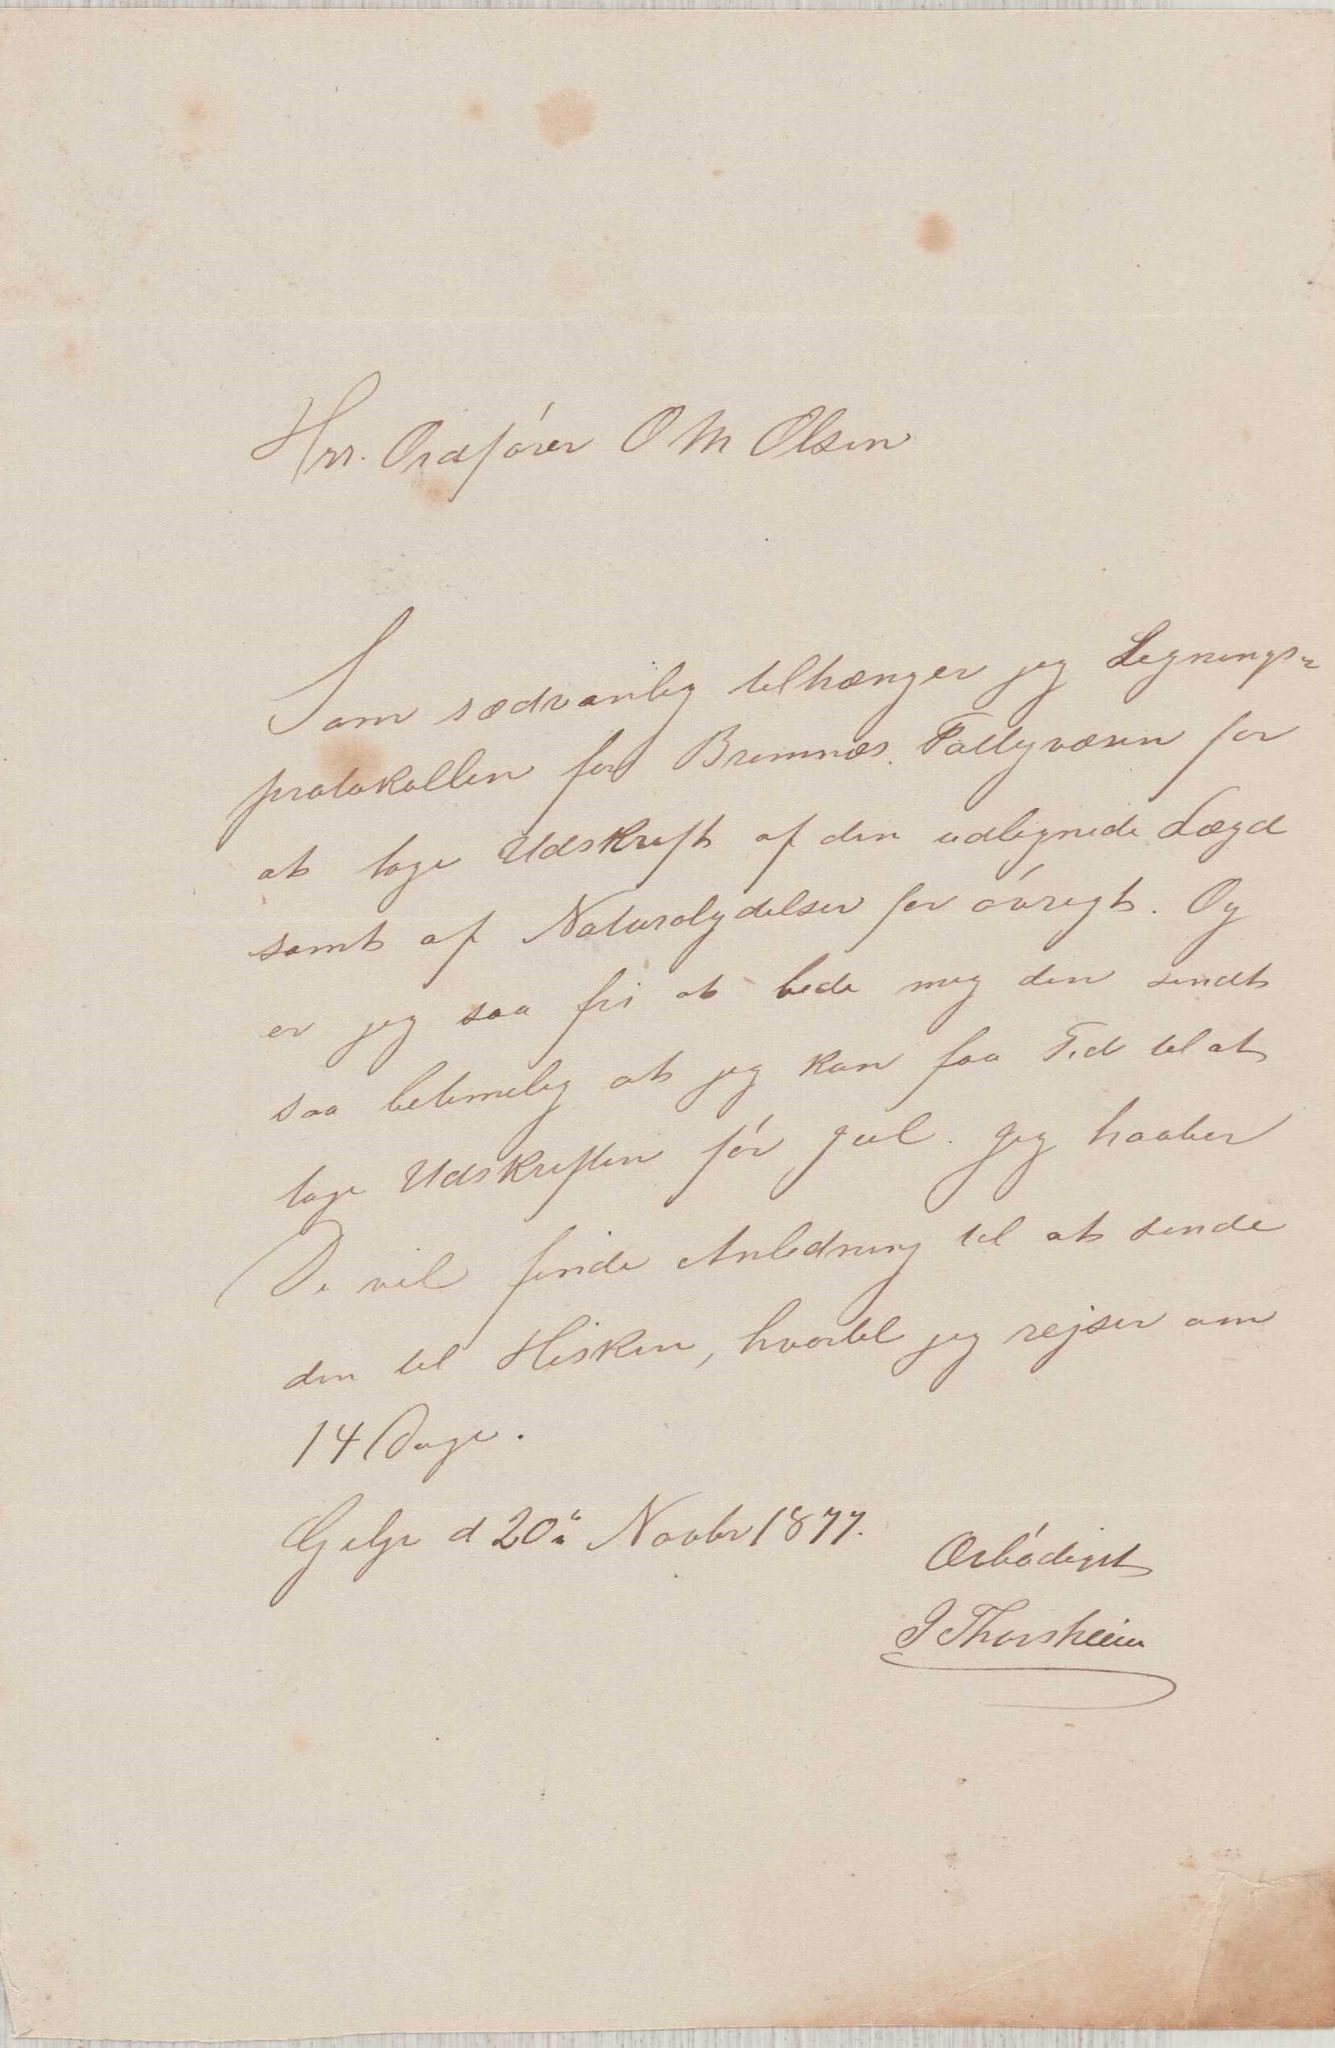 Hrr. Ordfórer O M Olsen
Som sædvanlig tilhænger jeg Legnings-
protokollen for Bremnæs Fattigvæsen for
at tage Udskrift af den udlignede Lægd
samt af Naturalydelser for óvrigt. Og
er jeg saa fri at bede mig den sendt
saa betimelig at jeg kan faa Tid til at
tage Udskriften fór Jul. Jeg haaber
De vil finde Anledning til at sende
den til Hisken, hvortil jeg rejser om
14 Dage.
d 20de Novbr 1877.
Ærbódigst
J Thorsheim